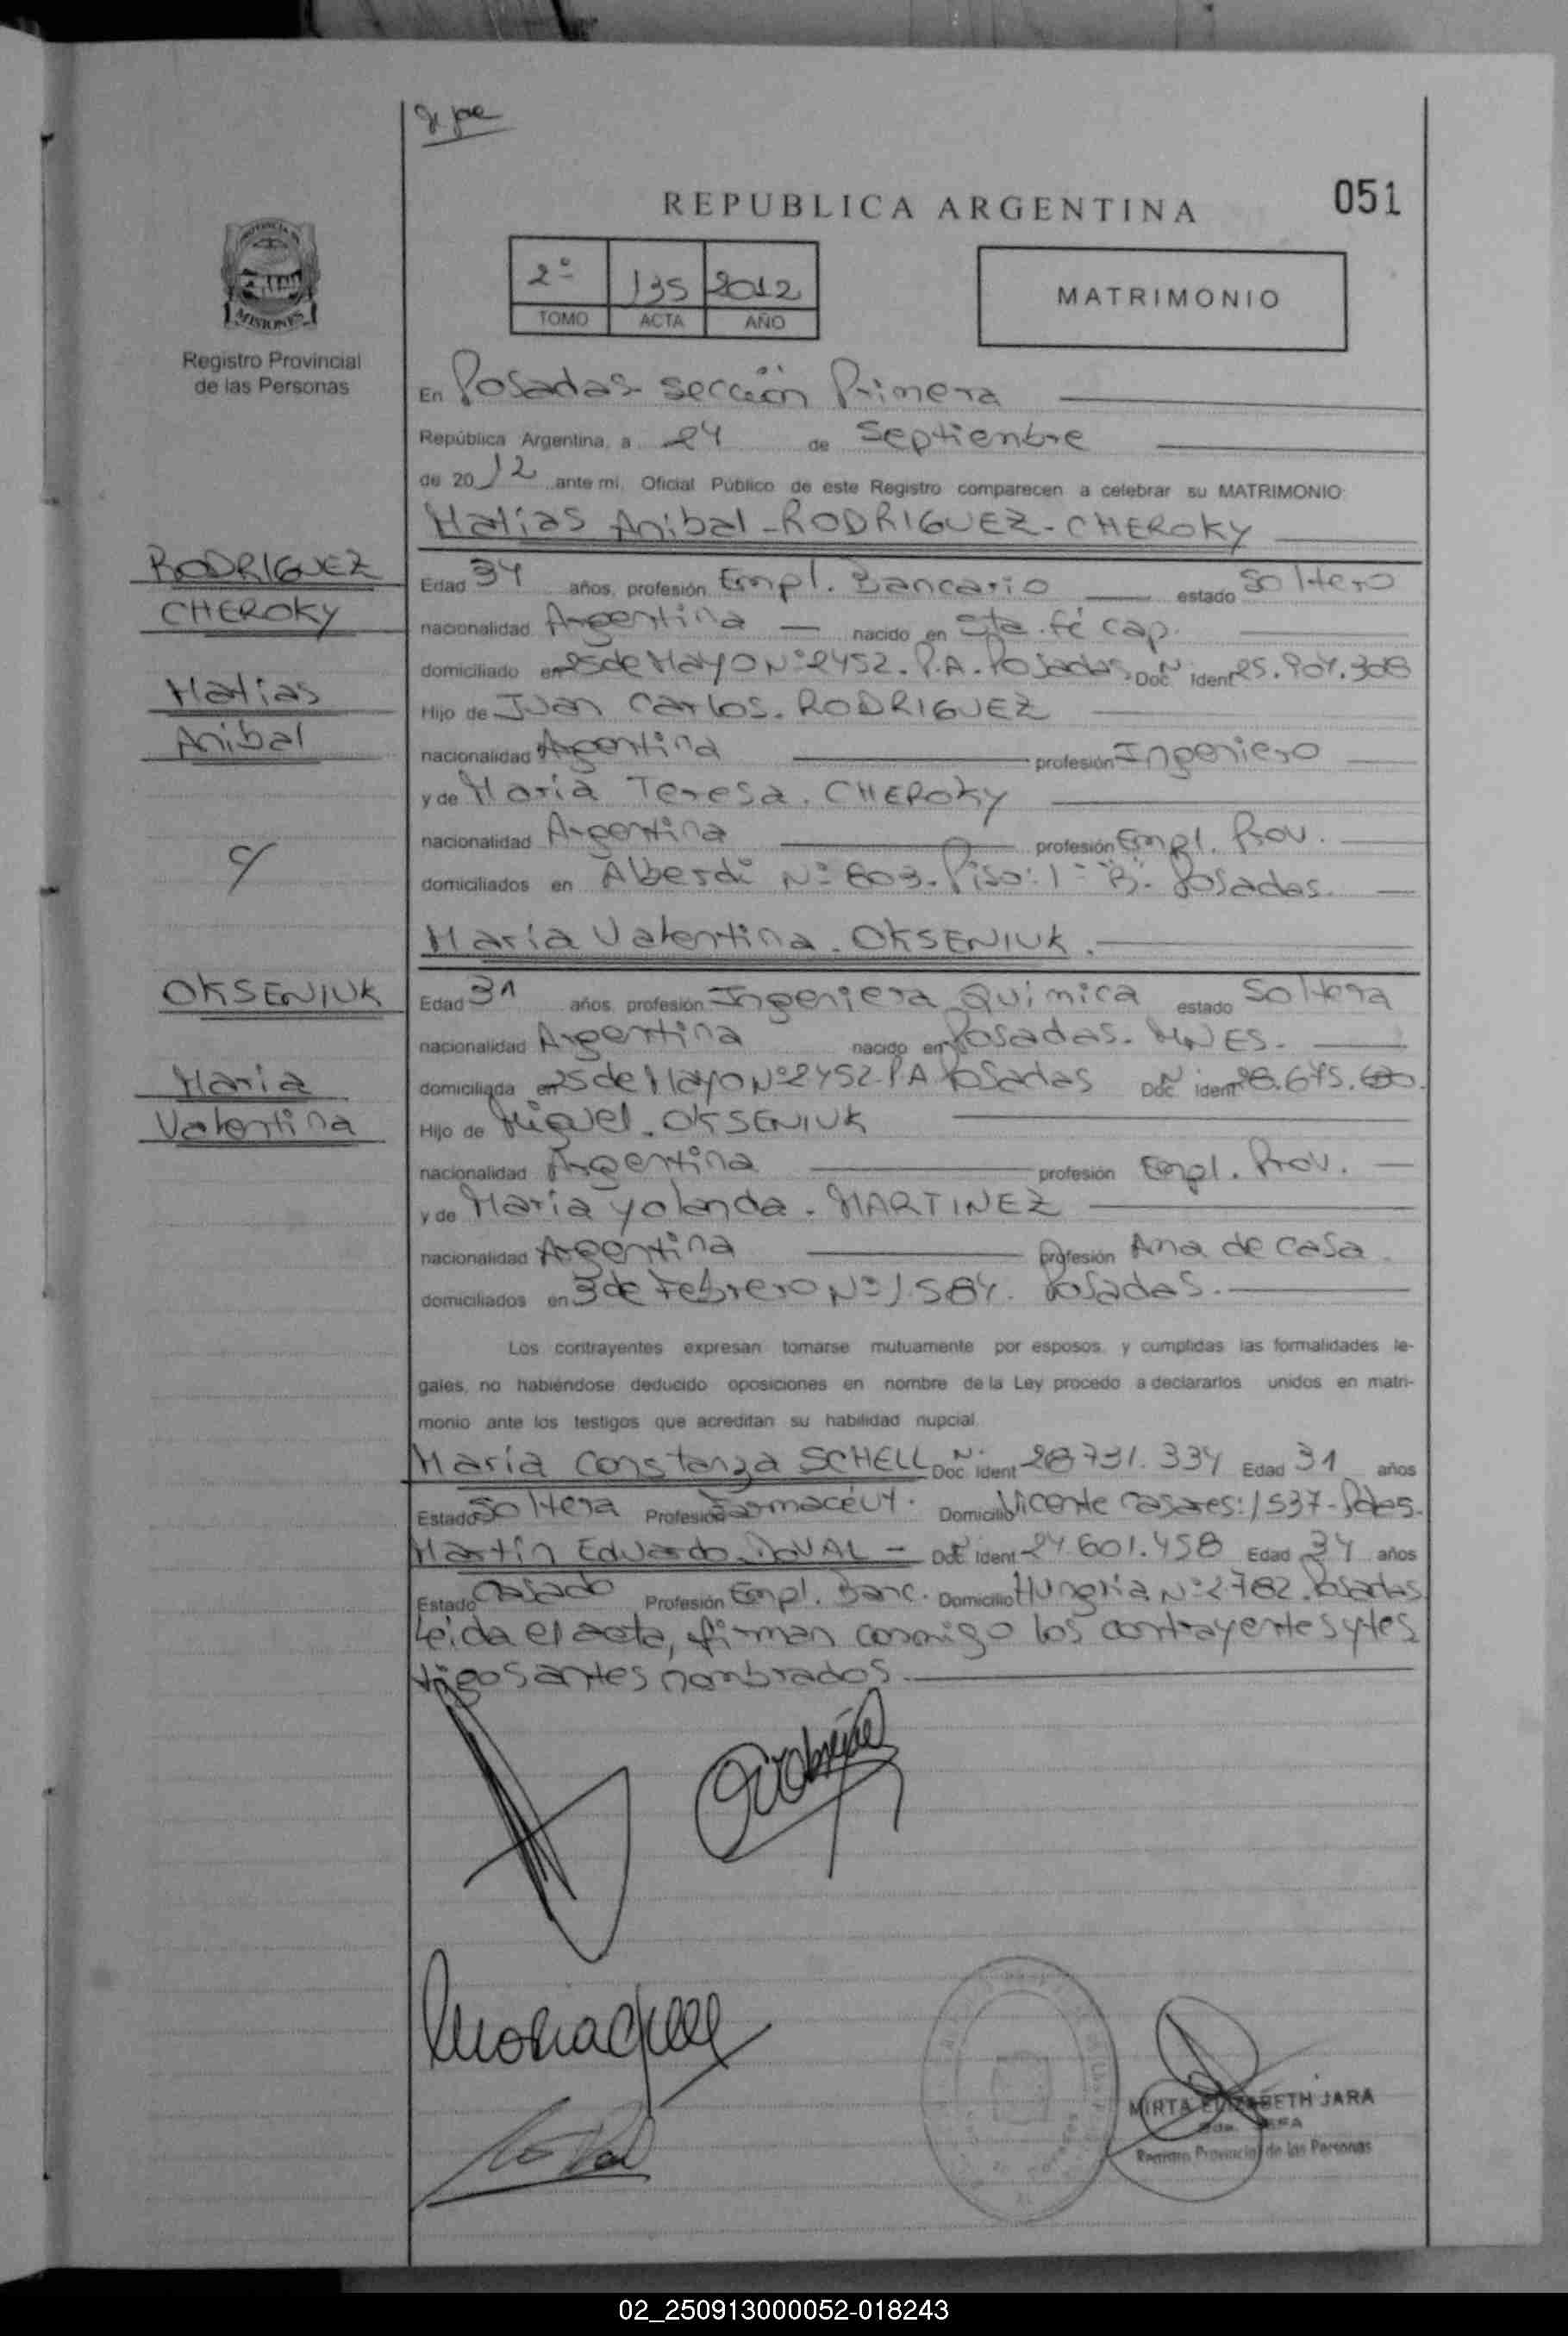 051
REPUBLICA ARGENTINA
2º 135 2012
TOMO ACTA AÑO
MATRIMONIO
MISIONES
Registro Provincial
de las Personas
En Posadas- sección Primera
República Argentina, a 24 de Septiembre
de 2012 ante mi, Oficial Público de este Registro comparecen a celebrar su MATRIMONIO:
Matias Anibal - RODRIGUEZ - CHEROKY
RODRIGUEZ
CHEROKY
Matias
Anibal
Edad 34 años, profesión Empl. Bancario estado Soltero
nacionalidad Argentina nacido en Sta. Fé cap.
domiciliado en 25 de Mayo Nº 2452. P.A. Posadas. Doc Nº Ident 25.904.308
Hijo de Juan Carlos. RODRIGUEZ
nacionalidad Argentina profesión Ingeniero
y de Maria Teresa. CHEROKY
nacionalidad Argentina profesión Empl. Prov.
c/
domiciliados en Alberdi Nº 603. Piso: 1º "B". Posadas.
María Valentina. OKSENIUK.
OKSENIUK
Maria
Valentina
Edad 31 años, profesión Ingeniera Química estado Soltera
nacionalidad Argentina nacido en Posadas. MNES.
domiciliada en 25 de Mayo Nº 2452. P.A Posadas Doc Nº ident 28.675.
Hijo de Miguel. OKSENIUK
nacionalidad Argentina profesión Empl. Prov.
y de María Yolanda. MARTINEZ
nacionalidad Argentina profesión Ama de casa.
domiciliados en 3 de Febrero Nº 1.584. Posadas.
Los contrayentes expresan tomarse mutuamente por esposos, y cumplidas las formalidades le-
gales, no habiéndose deducido oposiciones en nombre de la Ley procedo a declararlos unidos en matri-
monio ante los testigos que acreditan su habilidad nupcial.
María Constanza SCHELL Doc Nº Ident 28.731.334 Edad 31 años
Estado Soltera Profesión Farmacéut. Domicilio Vicente Casares: 1537 - Pdas.
Martín Eduardo. DOVAL - Doc Nº Ident 24.601.458 Edad 34 años
Estado Casado Profesión Empl. Banc. Domicilio Hungria Nº 2782. Posadas
Leida el acta, firman conmigo los contrayentes y tes
tigos antes nombrados.
MIRTA ELIZABETH JARA
Registro Provincial de las Personas
02_250913000052-018243